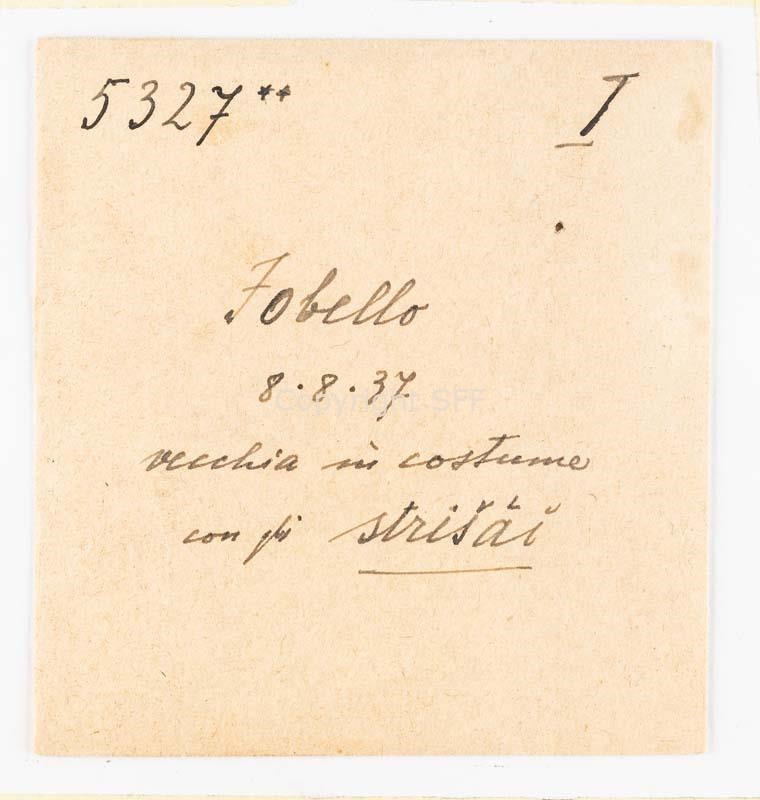 5327** I
Fobello
8.8.37
Copyright SFF
vecchia in costume
con gli strišái̯